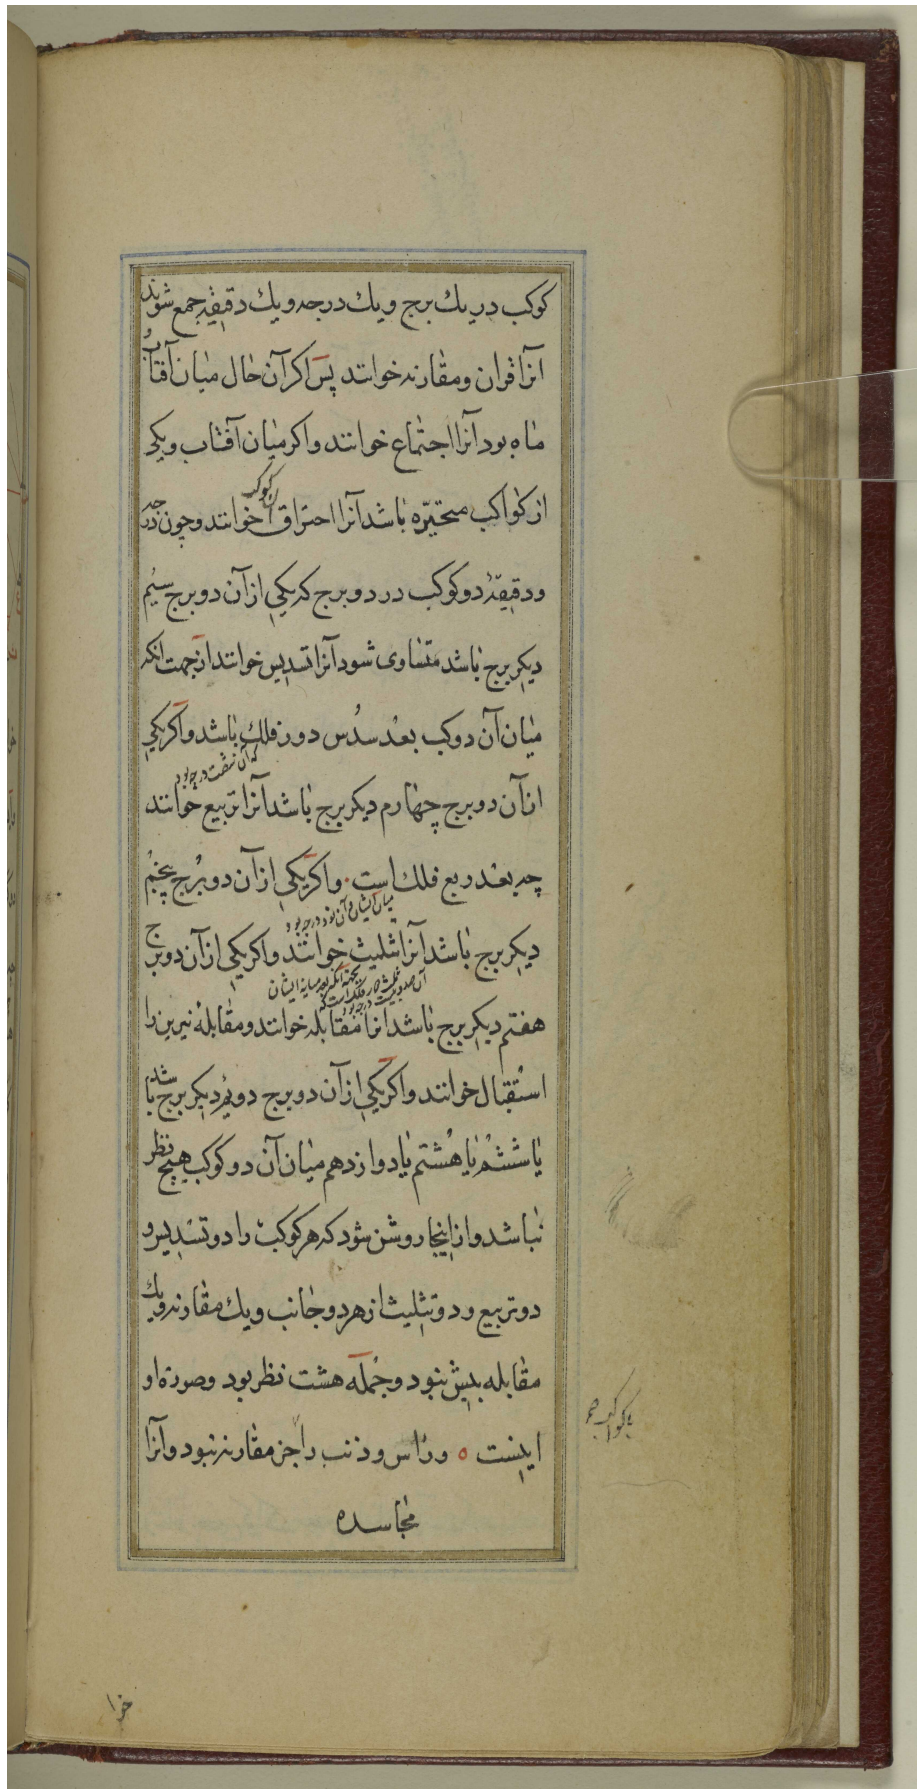 کوکب در یك برج و یك درجه و یك دقیقه جمع شوند
آنرا قران و مقارنه خوانند پس اکر آن حال میان آفتاب و
ماه بود آنرا اجتماع خوانند و اکر میان آفتاب و یکی
از کواکب متحیّره باشد آنرا احتراق آن کوکب خوانند و چون درجه
و دقیقهٔ دو کوکب در دو برج که یکی از آن دو برج سیُم
دیکر برج باشد متساوی شود آنرا تسدیس خوانند از جهت آنکه
میان آن دو کب بعد سُدس دور فلك باشد و اکر یکی
که آن شصت درجه بود
از آن دو برج چهارم دیکر برج باشد آنرا تربیع خوانند
چه بعد ربع فلك است و اکر یکی از آن دو برج پنجم
میان ایشان و آن نود درجه بود
دیکر برج باشد آنرا تثلیث خوانند و اکر یکی از آن دو برج
بجهة آنکه بعد میانه ایشان
ثلث دور فلك است که
آن صد و بیست درجه بود
هفتم دیکر برج باشد آنرا مقابله خوانند و مقابلهٔ نیرین را
استقبال خوانند و اکر یکی از آن دو برج دویُم دیکر برج باشد
یا ششُم یا هشتم یا دوازدهم میان آن دو کوکب هیچ نظر
نباشد و از اینجا روشن شود که هر کوکب را دو تسدیس و
دو تربیع و دو تثلیث از هر دو جانب و یك مقارنه و یك
مقابله بیش نبود و جُمله هشت نظر بود و صورة او
اینست ٥ و رأس و ذنب را جز مقارنه نبود و آنرا
با کواکب
مجاسده